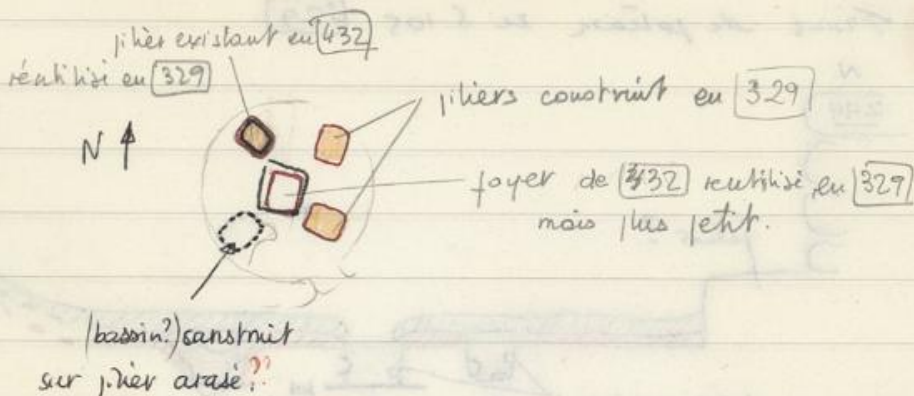 pilier existant en 432
réutilisé en 329
piliers construit en 329
N
foyer de 432 reutilisé en 329
mais plus petit.
(bassin?) construit
sur pilier arasé??